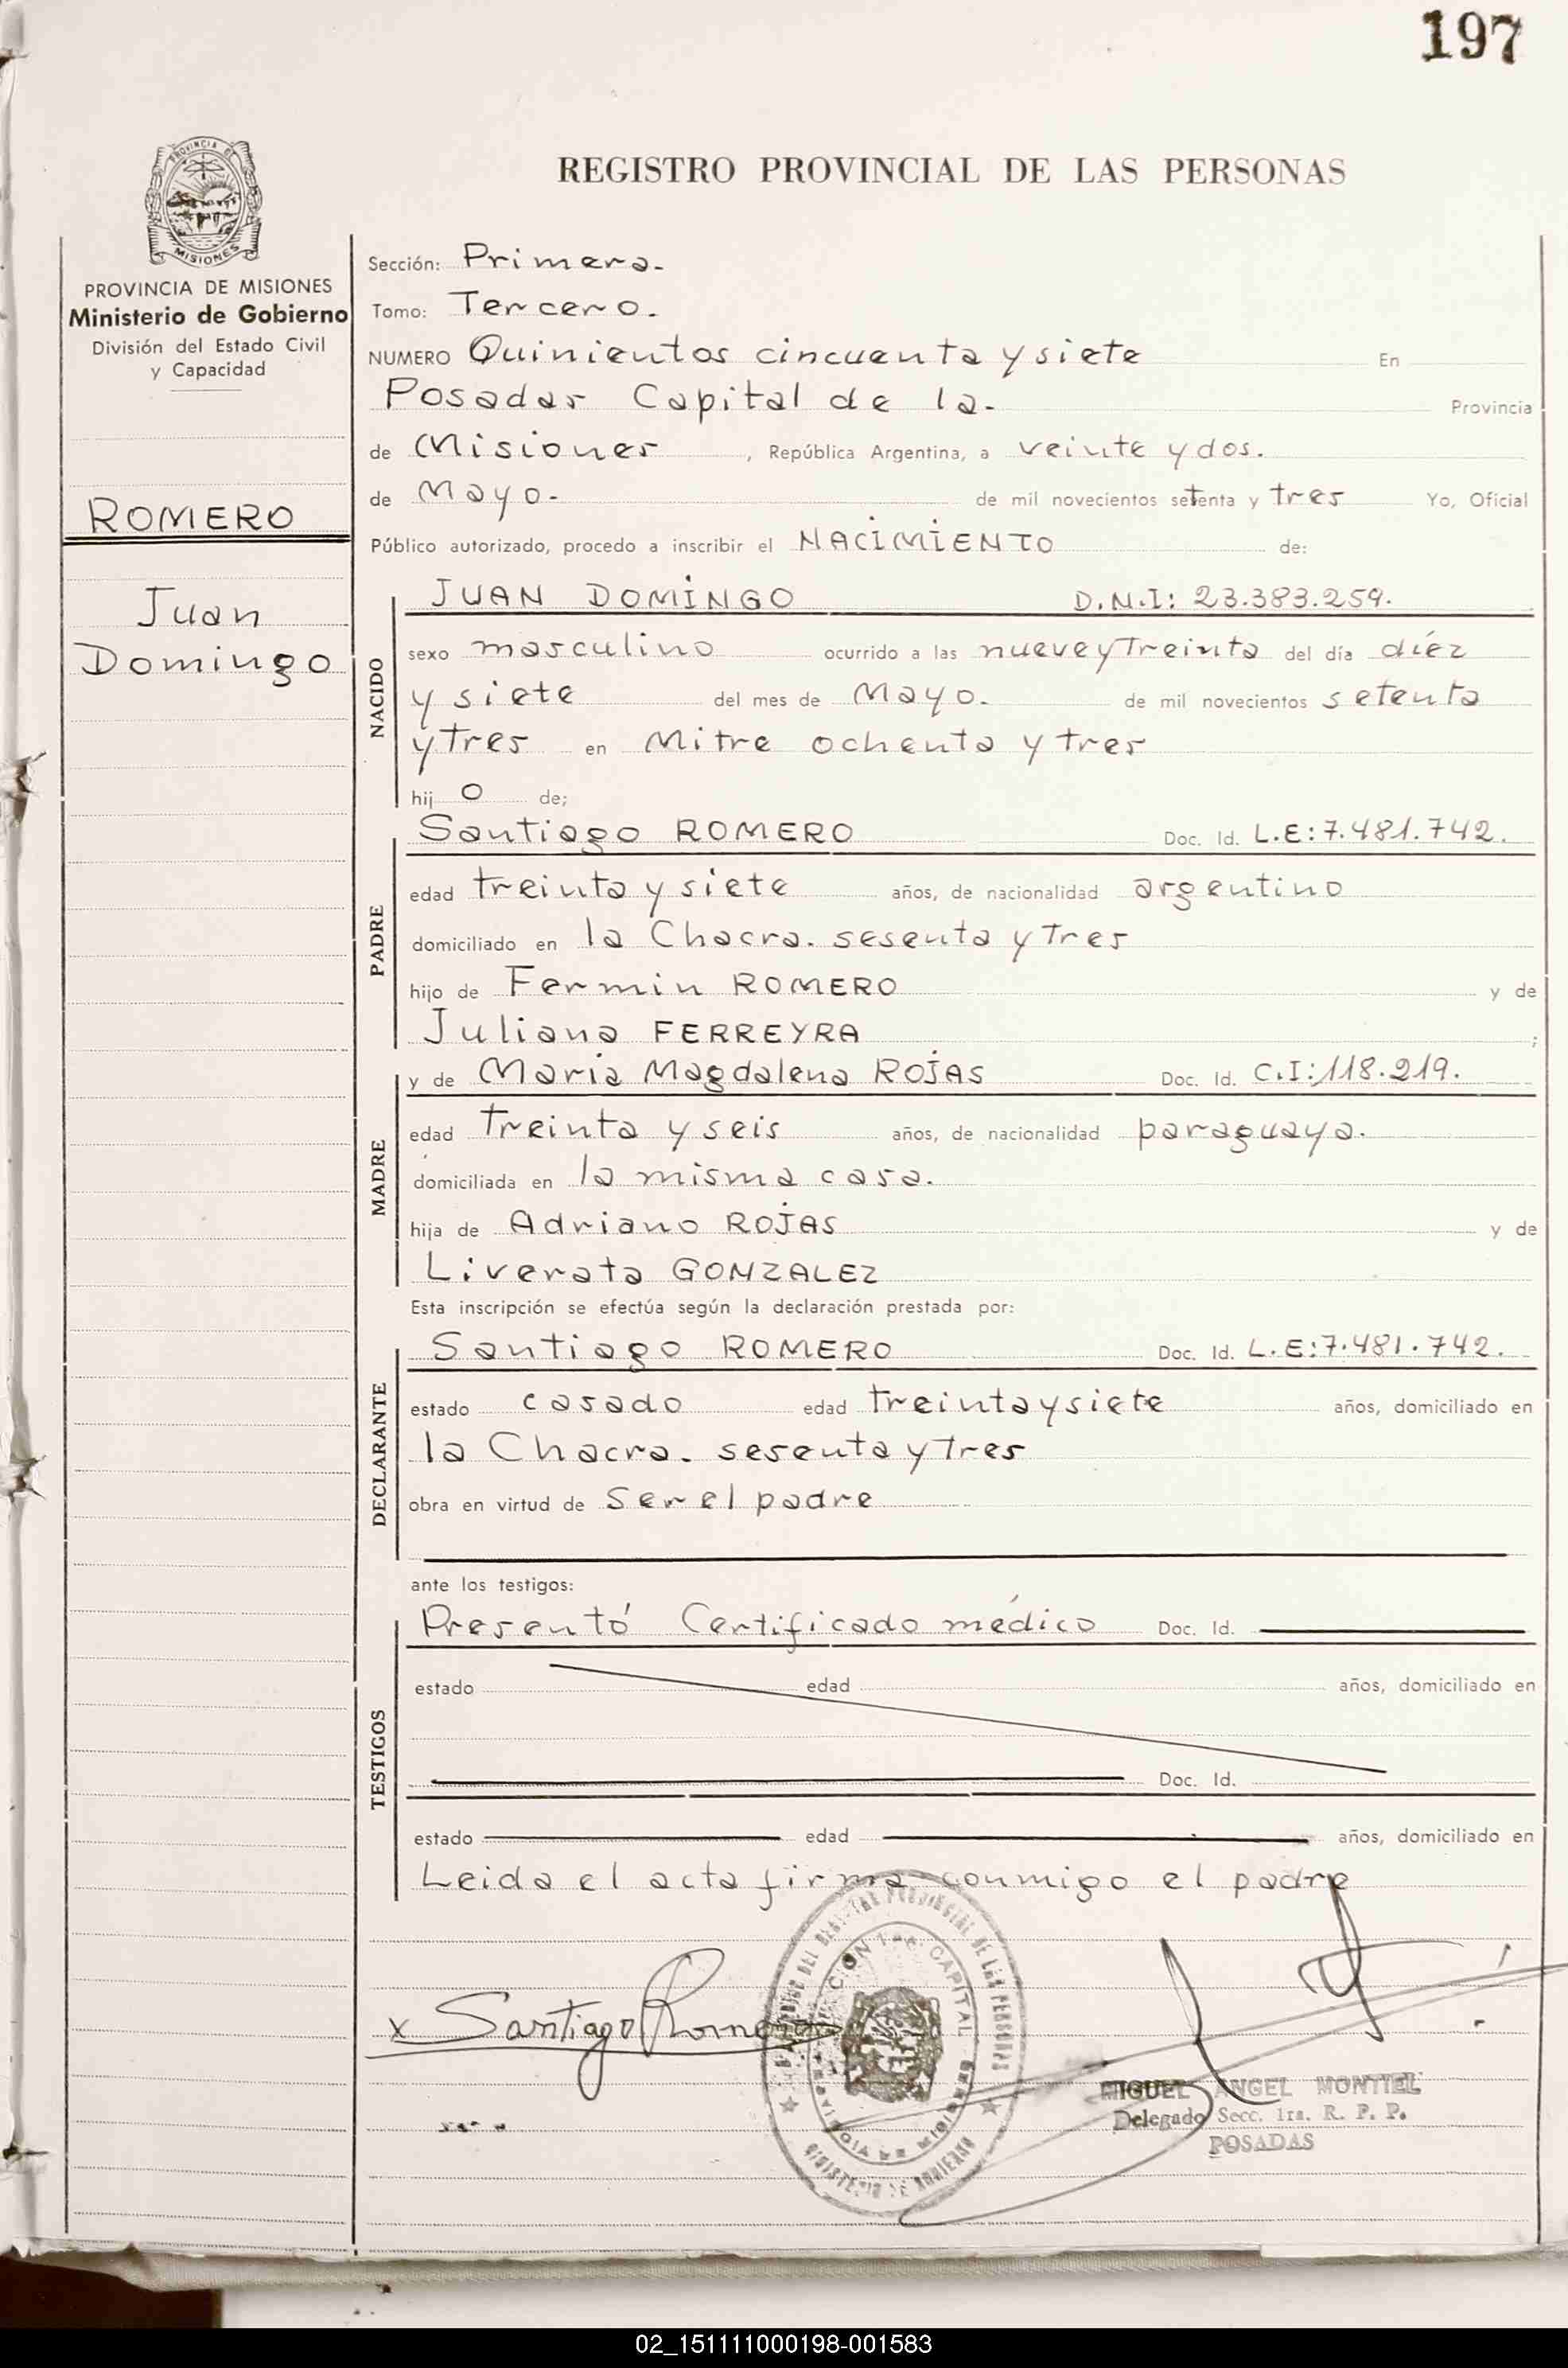 197
REGISTRO PROVINCIAL DE LAS PERSONAS
PROVINCIA DE MISIONES
Ministerio de Gobierno
División del Estado Civil
y Capacidad
ROMERO
Juan
Domingo
Sección: Primera.
Tomo: Tercero.
NUMERO Quinientos cincuenta y siete En
Posadas Capital de la. Provincia
de Misiones, República Argentina, a veinte y dos.
de Mayo. de mil novecientos setenta y tres Yo, Oficial
Público autorizado, procedo a inscribir el NACIMIENTO de:
NACIDO
JUAN DOMINGO D.N.I: 23.383.259.
sexo masculino ocurrido a las nueve y treinta del día diéz
y siete del mes de Mayo. de mil novecientos setenta
y tres en Mitre ochenta y tres
hij o de;
PADRE
Santiago ROMERO Doc. Id. L.E: 7.481.742.
edad treinta y siete años, de nacionalidad argentino
domiciliado en la Chacra. sesenta y tres
hijo de Fermin ROMERO y de
Juliana FERREYRA ;
MADRE
y de Maria Magdalena ROJAS Doc. Id. C.I: 118.219.
edad treinta y seis años, de nacionalidad paraguaya.
domiciliada en la misma casa.
hija de Adriano ROJAS y de
Liverata GONZALEZ
Esta inscripción se efectúa según la declaración prestada por:
DECLARANTE
Santiago ROMERO Doc. Id. L.E: 7.481.742.
estado casado edad treinta y siete años, domiciliado en
la Chacra. sesenta y tres
obra en virtud de Ser el padre
ante los testigos:
TESTIGOS
Presentó Certificado médico Doc. Id.
estado edad años, domiciliado en
Doc. Id.
estado edad años, domiciliado en
Leida el acta firma conmigo el padre
x Santiago Romero
CAPITAL
MINISTERIO DE GOBIERNO
MIGUEL ANGEL MONTIEL
Delegado Secc. 1ra. R. P. P.
POSADAS
02_151111000198-001583